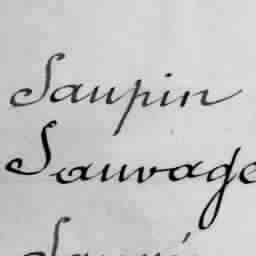 Saupin
Sauvage